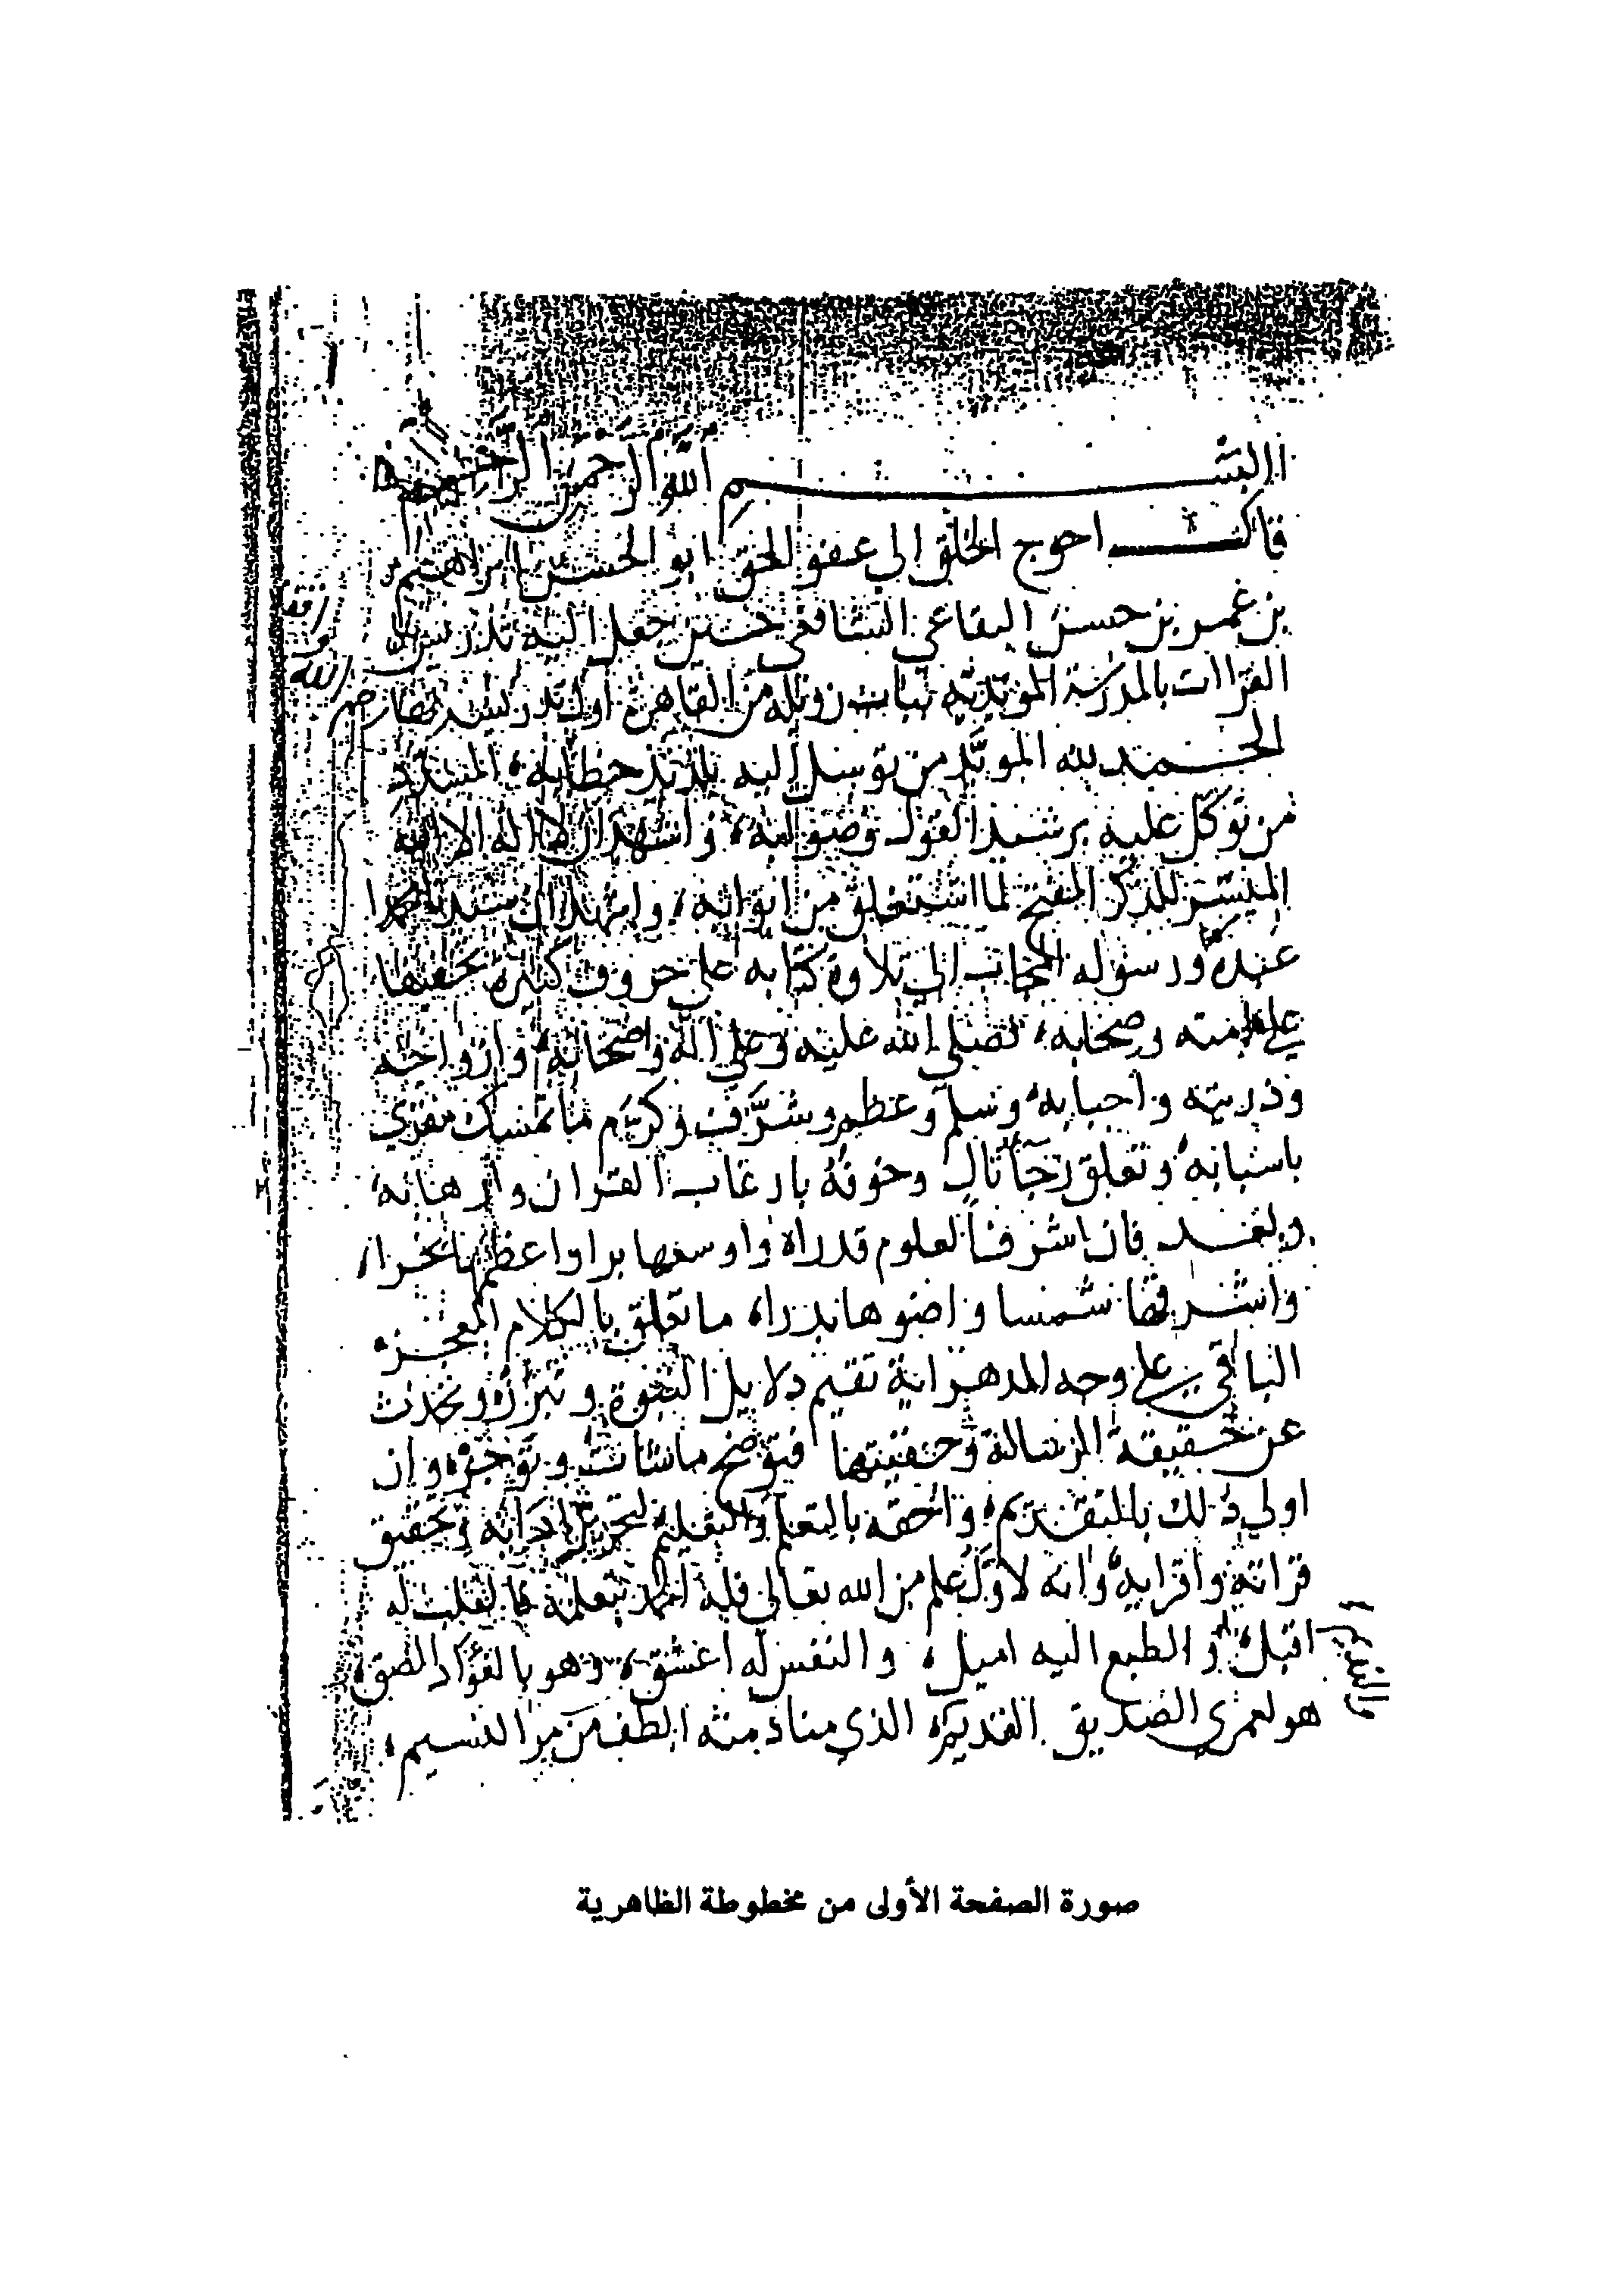 بسم الله الرحمن الرحيم
قال احوج الخلق الى عفو الحق ابو الحسن ابراهيم
بن عمر بن حسن البقاعي الشافعي حين جعل اليه تدريس
القراات بالمدرسة المويدية بباب زويلة من القاهرة اول تدريسه
الحمد لله المويد من توسل اليه بلذيذ خطابه، المسدد
من توكل عليه برشد القول وصوابه، واشهد ان لا اله الا الله
الميسر للذكر المفتح لما استغلق من ابوابه، واشهد ان سيدنا محمدا
عبده ورسوله المجاب الى تلاوة كتابه على حروف كثيرة تخفيفا
على امته وصحابه، صلى الله عليه وعلى اله واصحابه، وازواجه
وذريته واحبابه، وسلم وعظم وشرف وكرم ما تمسك مقري
باسبابه، وتعلق رجا تال وخوفه بارغاب القران وارهابه
وبعد فان اشرف العلوم قدرا، واوسعها برا واعظمها بحرا،
واشرقها شمسا واضوها بدرا، ما تعلق بالكلام المعجز،
الباقي على وجه الدهر اية تقيم دلايل النبوة وتبرزه وتحدث
عن حقيقة الرسالة وحقيتها فتوضح ما شات وتوجزه، وان
اولى ذلك بالتقديم، واحقه بالتعلم والتعليم تحرير ادايه وتحقيق
قراته واقرايه، وانه لاول علم من الله تعالى فله الحمد بتعلمه فالقلب له
اقبل، والطبع اليه اميل، والنفس له اعشق، وهو بالفؤاد الصق،
هو لعمري الصديق القديم، الذي منادمته الطف من مر النسيم،
صورة الصفحة الأولى من مخطوطة الظاهرية